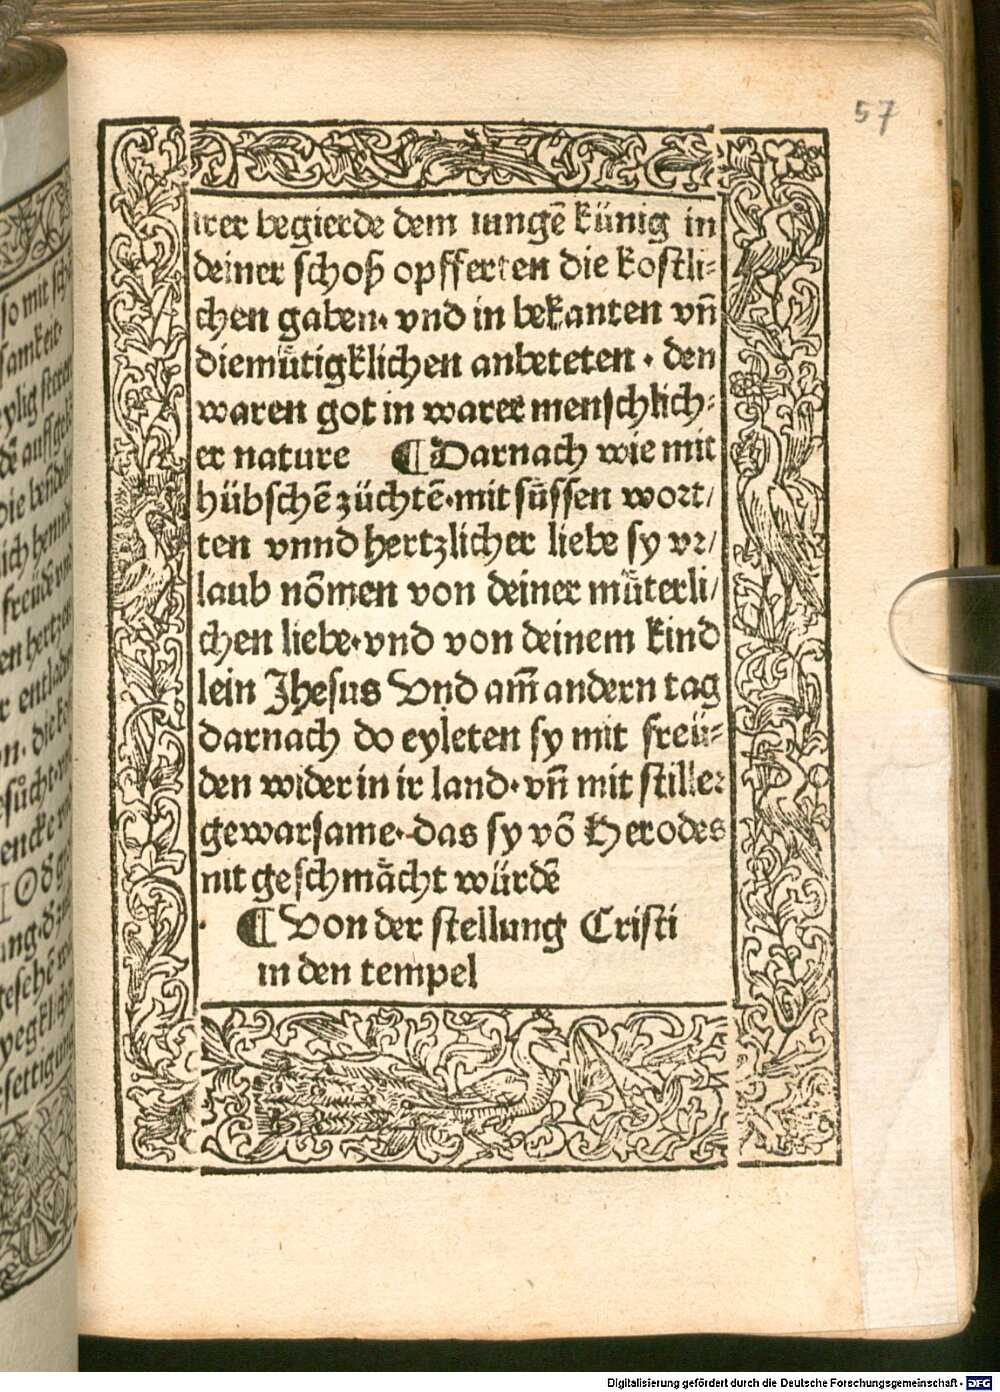 57
irer begierde dem iungē künig in
deiner schoß opfferten die kostli⸗
chen gaben· vnd in bekanten vñ
diemuͤtigklichen anbeteten · den
waren got in warer menschlich⸗
er nature ¶ Darnach wie mit
hübschē züchtē·mit suͤssen wort/
ten vnnd hertzlicher liebe sy vr/
laub nōmen von deiner muͤterli/
chen liebe·vnd von deinem kind
lein Jhesus Vnd am̄ andern tag
darnach do eyleten sy mit freü⸗
den wider in ir land·vñ mit stiller
gewarsame·das sy vō Herodes
nit geschmaͤcht würdē
¶ Von der stellung Cristi
in den tempel
so mit
samkeit·
Digitalisierung gefördert durch die Deutsche Forschungsgemeinschaft - DFG